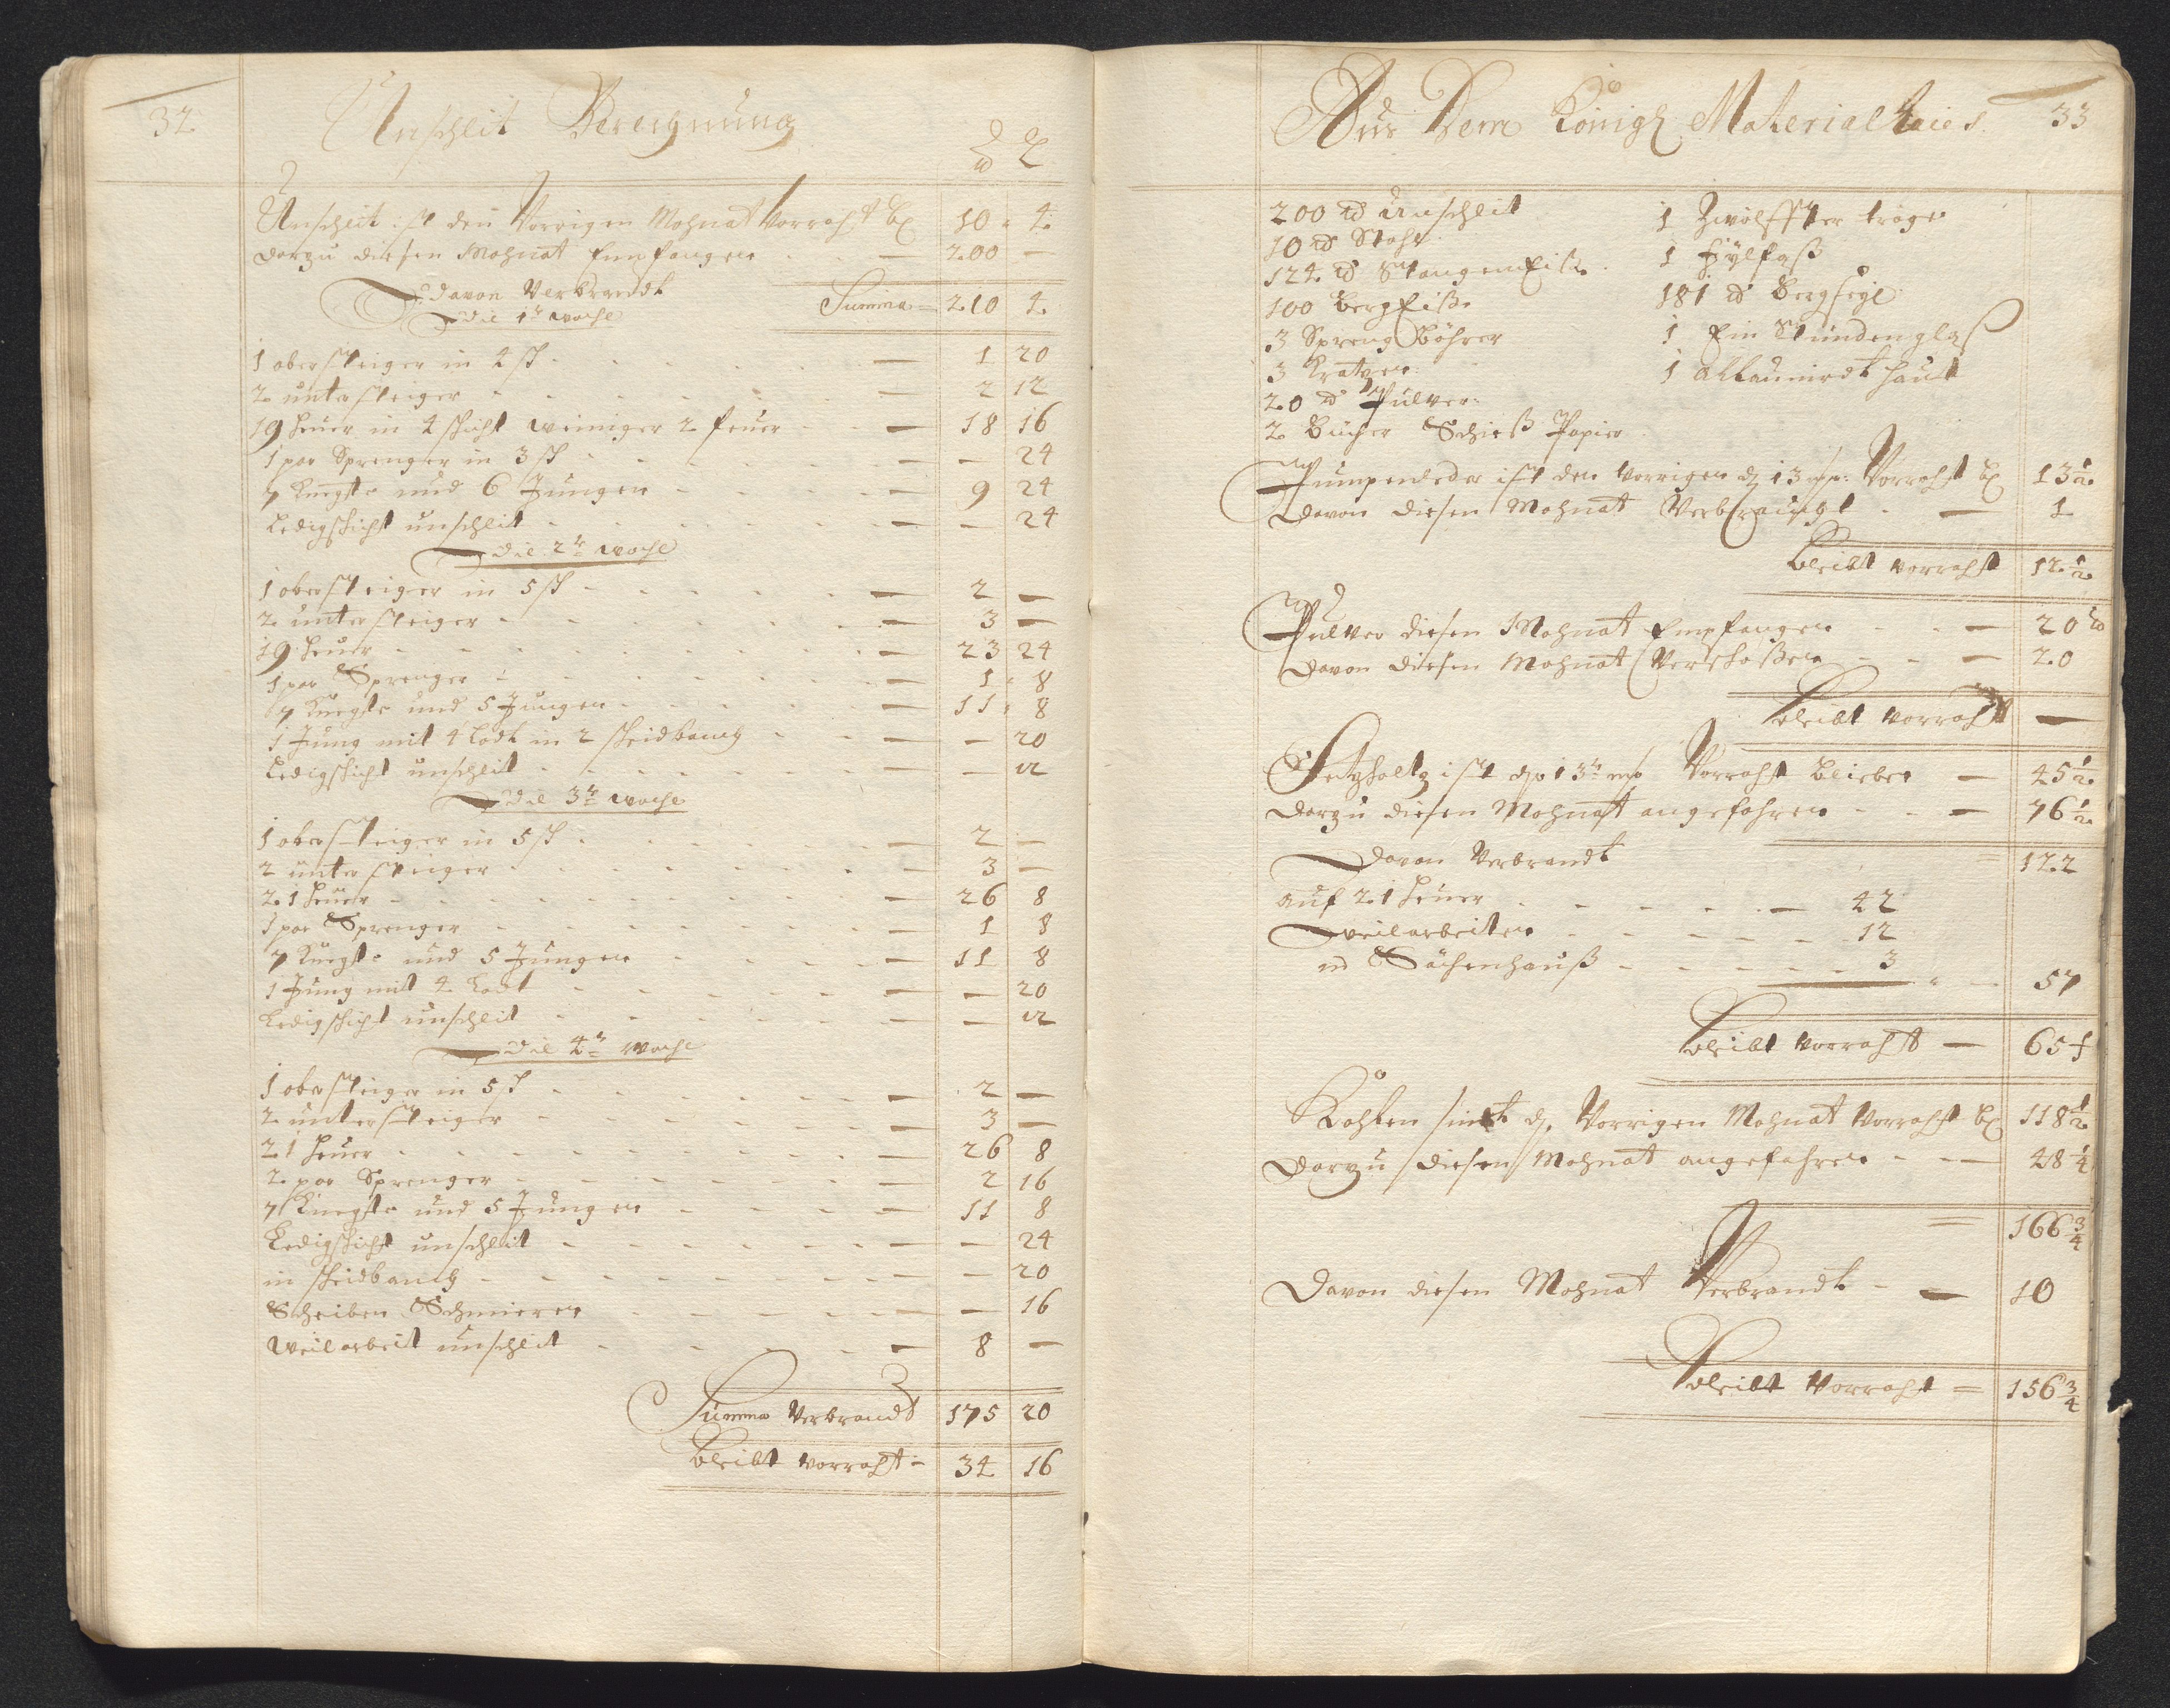 32
Unschlit Berechnung
℔ L
Unschlit ist den Vorrigen Mohnat Vorraht bl 10 4
darzu diesen Mohnat Empfangen — 200 —
Summa = 210 4
davon Verbrandt
die 1te woche
1 obersteiger in 4 sch — 1 20
2 untersteiger — 2 12
19 heuer in 4 schicht weiniger 2 heuer — 18 16
1 par Sprenger in 3 sch — — 24
7 knegte und 6 Jungen — 9 24
Ledigschicht unschlit — — 24
die 2te woche
1 obersteiger in 5 sch — 2 —
2 untersteiger — 3 —
19 heuer — 23 24
1 par Sprenger — 1 8
7 knegte und 5 Jungen — 11 8
1 Jung mit 4 Lodt in 2 scheidbanck — — 20
Ledigschicht unschlit — — 12
die 3te woche
1 obersteiger in 5 sch — 2 —
2 untersteiger — 3 —
21 heuer — 26 8
1 par Sprenger — 1 8
7 knegte und 5 Jungen — 11 8
1 Jung mit 4 Lodt — — 20
Ledigschicht unschlit — — 12
die 4te woche
1 obersteiger in 5 sch — 2 —
2 untersteiger — 3 —
21 heuer — 26 8
2 par Sprenger — 2 16
7 knegte und 5 Jungen — 11 8
Ledigschicht unschlit — — 24
in scheidbanck — — 20
Scheiben Schmieren — — 16
weilarbeit unschlit — 8 —
Summa Verbrandt 175 20
bleibt vorraht = 34 16
Aus Dem Königl Material 33
200 ℔ Unschlit
10 ℔ Stahl
124 ℔ StangenEisen
100 bergEisen
3 Spreng Böhrer
3 Kratzer
20 ℔ Pulver
2 Bücher Schieß Papier
1 Zwölffter tröge
1 fylfaß
181 ℔ bergseyl
1 Ein Stundenglaß
1 allaunirdt haut
Pumpenleder ist den vorrigen 13 Vorraht bl 13 1/2
davon diesen Mohnat Verbraucht — 1
bleibt vorraht 12 1/2
Pulver diesen Mohnat Empfangen — 20 ℔
davon diesen Mohnat Verschoßen — 20
bleibt vorraht —
Setzholtz ist 13te Vorraht blieben — 45 1/2
darzu diesen Mohnat angefahren — 76 1/2
= 122
davon Verbrandt
auf 21 heuer — 42
weilarbeiten — 12
Sächenhauß — 3
57
bleibt vorraht — 65 f
Kohlen sindt Vorrigen Mohnat Vorraht bl 118 1/2
darzu diesen Mohnat angefahren — 48 1/4
= 166 3/4
Davon diesen Mohnat Verbrandt — 10
bleibt Vorraht = 156 3/4